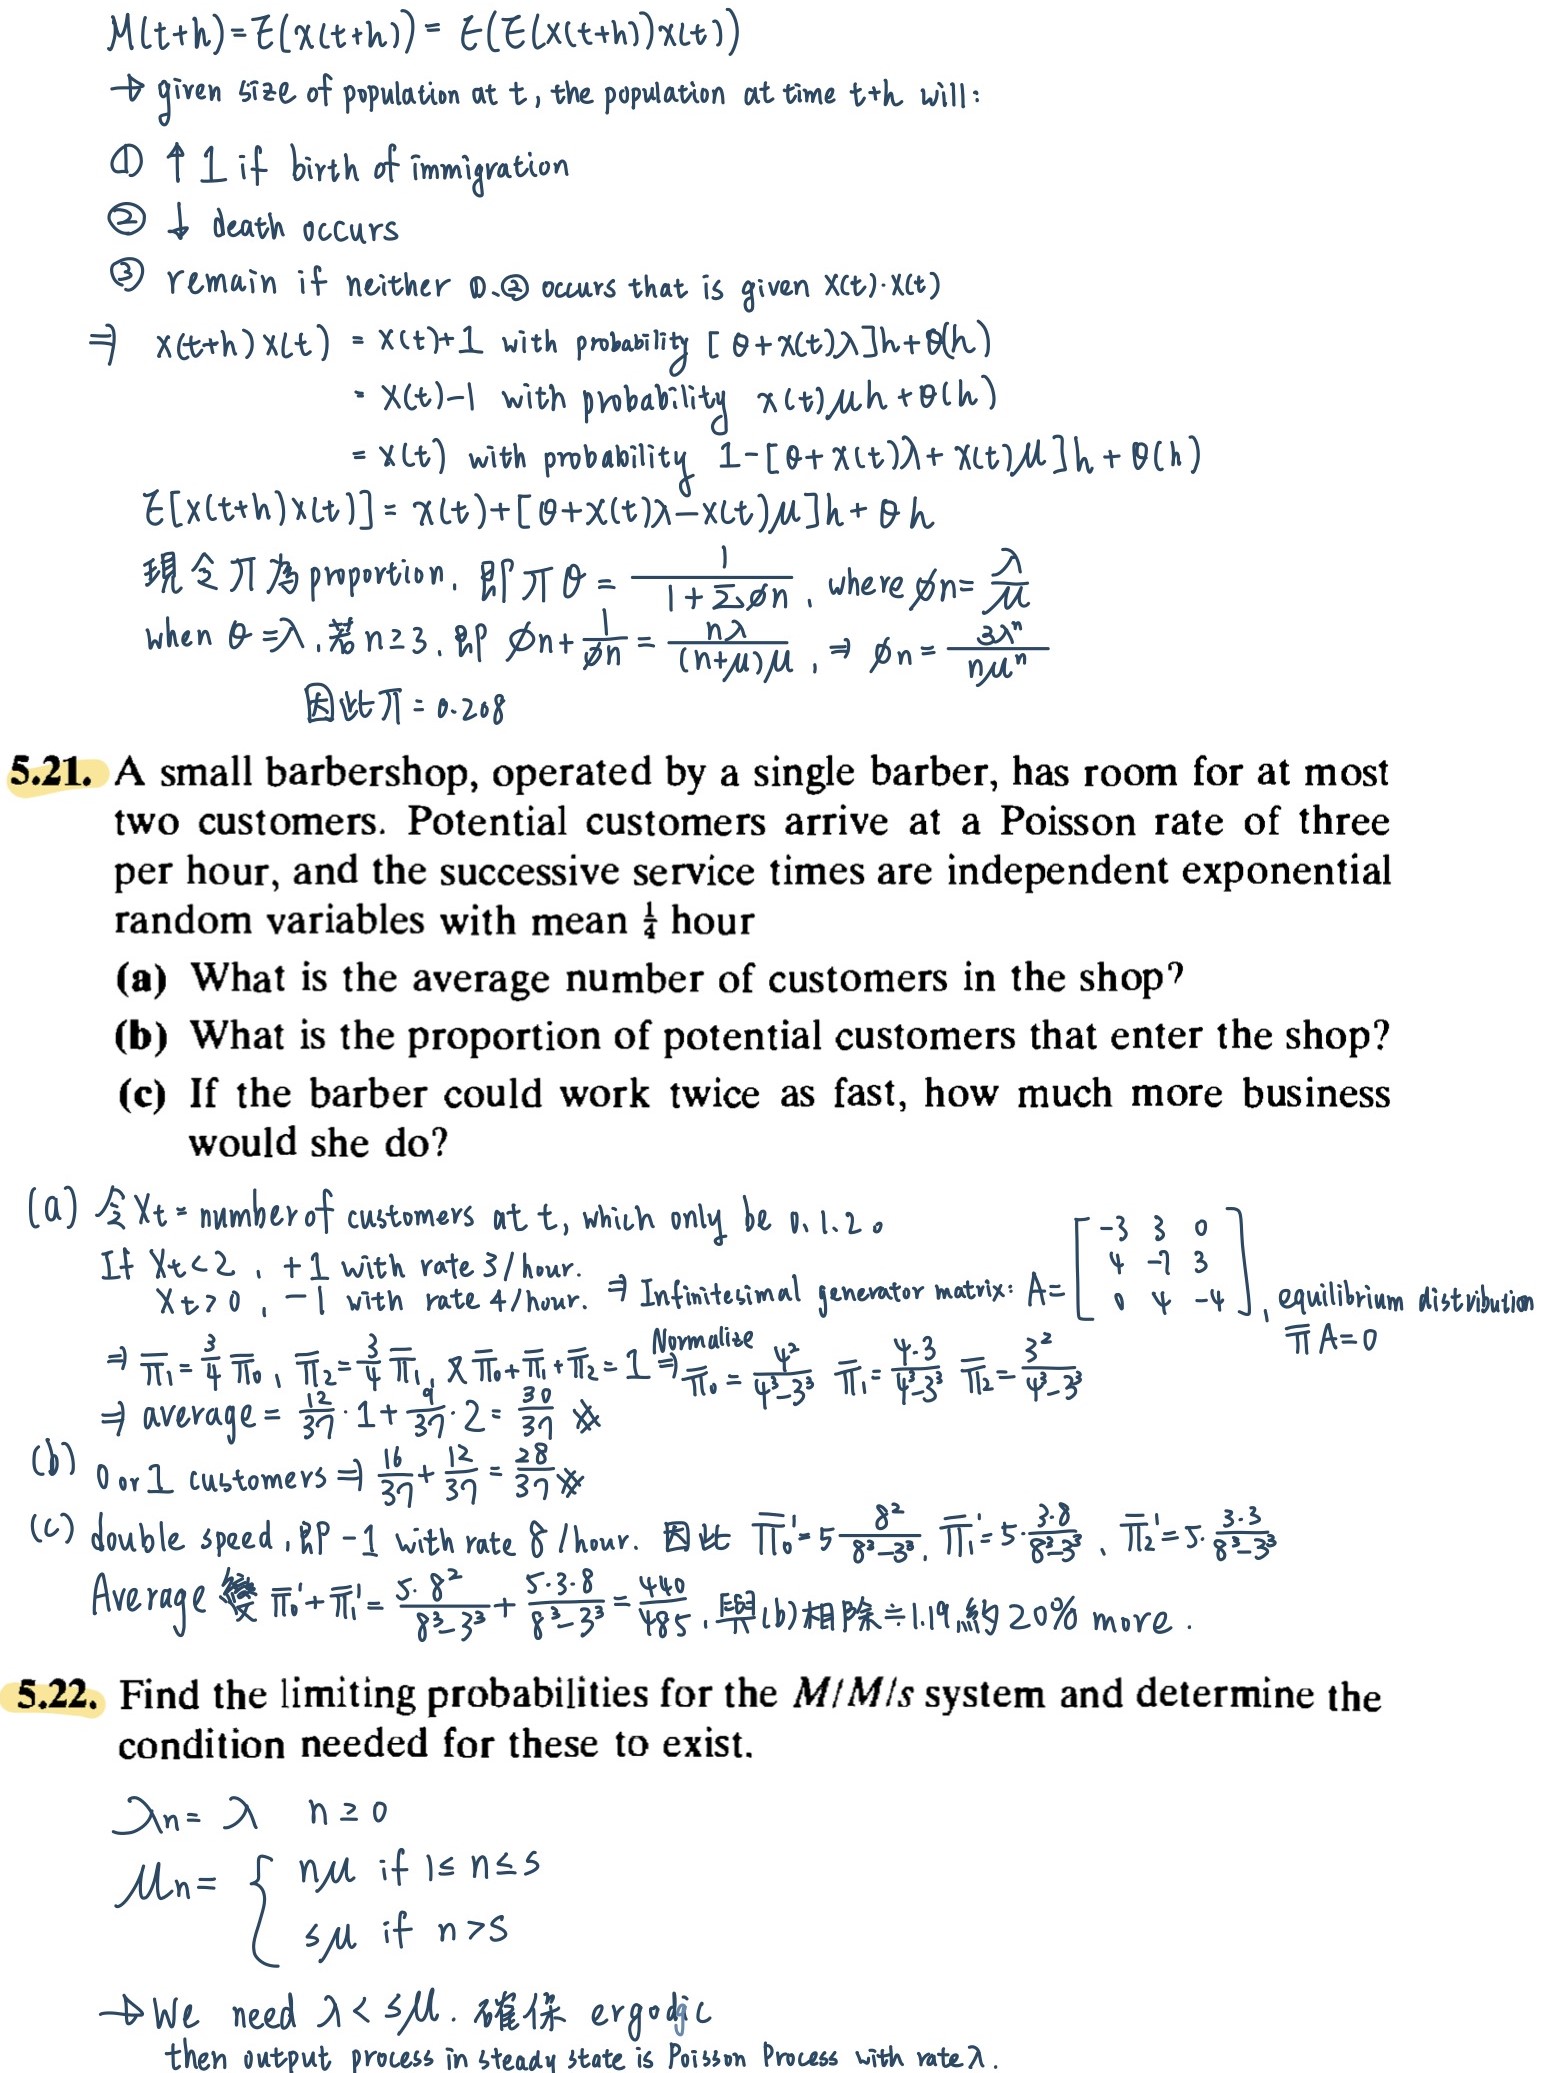 M(t+h)=E(X(t+h))= E(E(X(t+h))X(t))
→ given size of population at t, the population at time t+h will:
① ↑ 1 if birth of immigration
② ↓ death occurs
③ remain if neither ①.② occurs that is given X(t)·X(t)
⇒ X(t+h)X(t) = X(t)+1 with probability [θ+X(t)λ]h+θ(h)
= X(t)-1 with probability X(t)μh+θ(h)
= X(t) with probability 1-[θ+X(t)λ+X(t)μ]h+θ(h)
E[X(t+h)X(t)]= X(t)+[θ+X(t)λ-X(t)μ]h+θh
現令π為proportion, 即πθ = 1/(1+Σøn), where øn= λ/μ
when θ=λ, 若n≥3, 即 øn+ 1/øn = nλ/((n+μ)μ), ⇒ øn = 3λⁿ/(nμⁿ)
因此π = 0.208
5.21. A small barbershop, operated by a single barber, has room for at most
two customers. Potential customers arrive at a Poisson rate of three
per hour, and the successive service times are independent exponential
random variables with mean ¼ hour
(a) What is the average number of customers in the shop?
(b) What is the proportion of potential customers that enter the shop?
(c) If the barber could work twice as fast, how much more business
would she do?
(a) 令Xt = number of customers at t, which only be 0.1.2。
If Xt<2, +1 with rate 3/hour.
Xt>0, -1 with rate 4/hour. ⇒ Infinitesimal generator matrix: A= [-3 3 0; 4 -7 3; 0 4 -4], equilibrium distribution
π̄A=0
⇒ π̄₁= 3/4 π̄₀, π̄₂= 3/4 π̄₁, 又π̄₀+π̄₁+π̄₂=1 Normalize ⇒ π̄₀ = 4²/(4³-3³) π̄₁= 4·3/(4³-3³) π̄₂= 3²/(4³-3³)
⇒ average = 12/37·1+ 9/37·2= 30/37 ※
(b) 0 or 1 customers ⇒ 16/37 + 12/37 = 28/37 ※
(c) double speed, 即 -1 with rate 8/hour. 因此 π̄₀'=5 8²/(8³-3³), π̄₁'=5· 3·8/(8³-3³), π̄₂'=5· 3·3/(8³-3³)
Average 變 π̄₀'+π̄₁'= 5·8²/(8³-3³) + 5·3·8/(8³-3³) = 440/485, 與(b)相除≑1.19,約20% more.
5.22. Find the limiting probabilities for the M/M/s system and determine the
condition needed for these to exist.
λn= λ n≥0
μn= { nμ if 1≤n≤s
sμ if n>s
→ We need λ<sμ. 確保 ergodic
then output process in steady state is Poisson Process with rate λ.